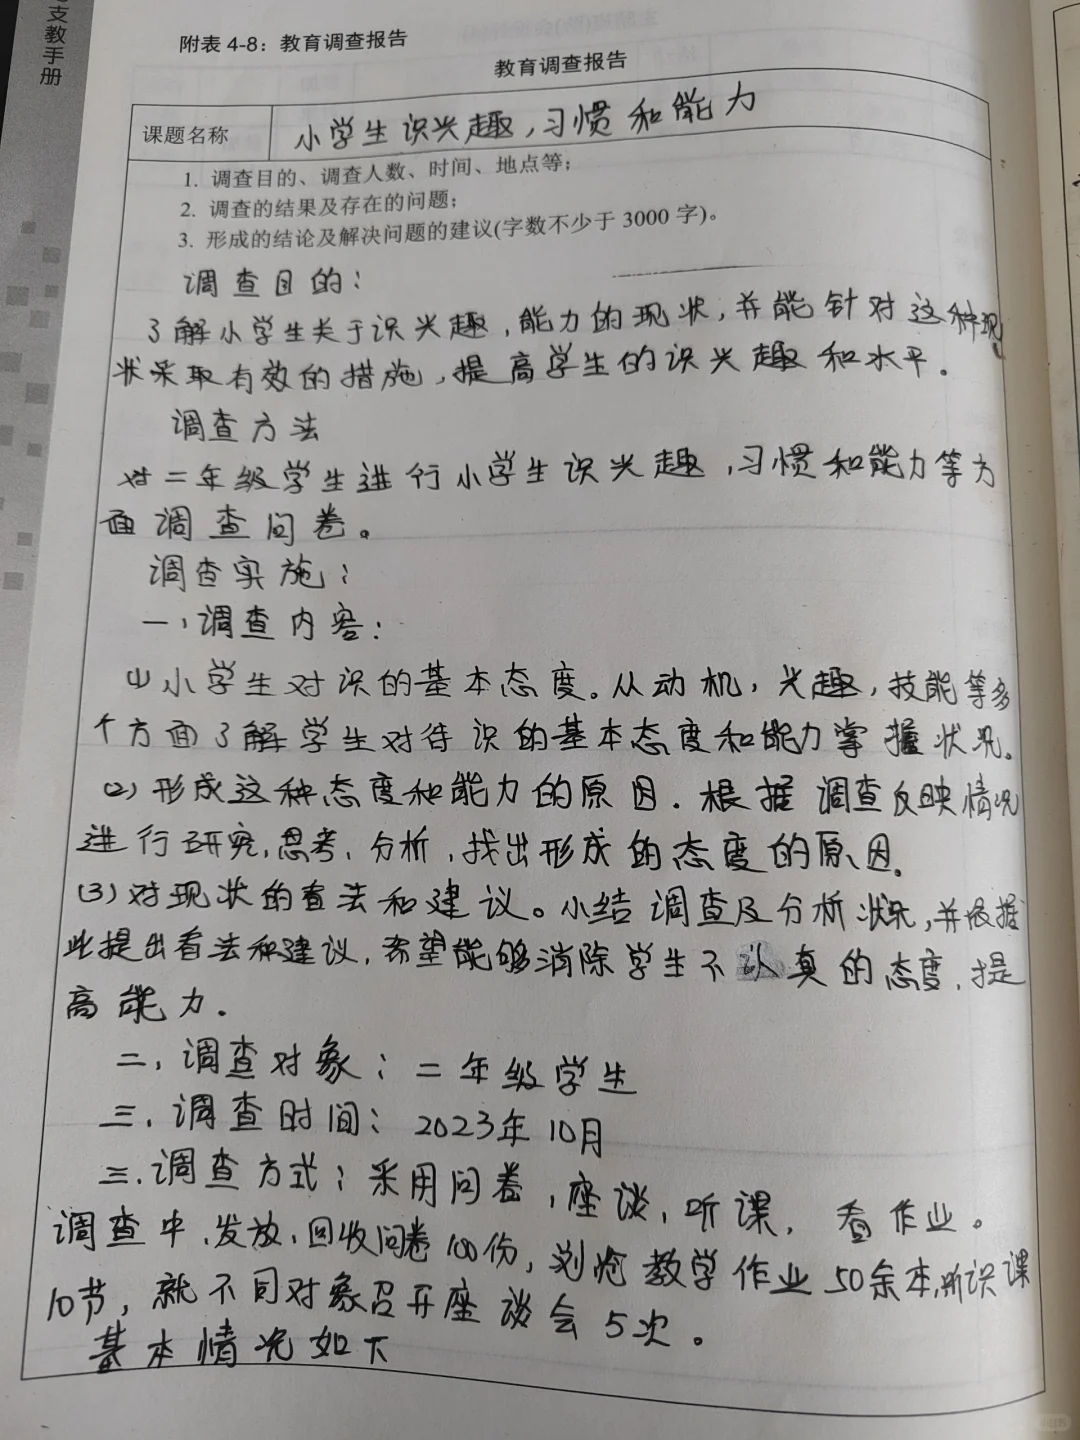 支教手册
附表 4-8：教育调查报告
教育调查报告
课题名称
小学生识兴趣，习惯和能力
1. 调查目的、调查人数、时间、地点等；
2. 调查的结果及存在的问题；
3. 形成的结论及解决问题的建议(字数不少于 3000 字)。
调查目的：
了解小学生关于识兴趣，能力的现状，并能针对这种现
状采取有效的措施，提高学生的识兴趣和水平。
调查方法
对二年级学生进行小学生识兴趣，习惯和能力等方
面调查问卷。
调查实施：
一、调查内容：
(1)小学生对识的基本态度。从动机，兴趣，技能等多
个方面了解学生对待识的基本态度和能力掌握状况。
(2)形成这种态度和能力的原因。根据调查反映情况
进行研究，思考，分析，找出形成的态度的原因。
(3)对现状的看法和建议。小结调查及分析状况，并依据
此提出看法和建议，希望能够消除学生不认真的态度，提
高能力。
二、调查对象：二年级学生
三、调查时间：2023年10月
三、调查方式：采用问卷，座谈，听课，看作业。
调查中，发放，回收问卷100份，浏览教学作业50余本，听识课
10节，就不同对象召开座谈会5次。
基本情况如下